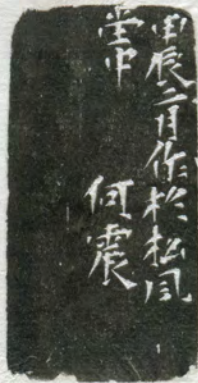 甲辰二月作於松風
堂中
何震